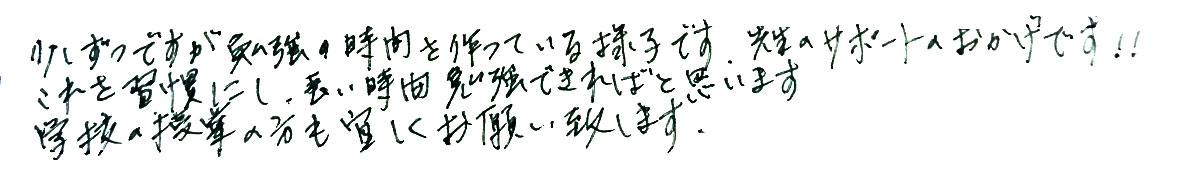 少しずつですが勉強の時間を作っている様子です。先生のサポートのおかげです!!
これを習慣にし、長い時間勉強できればと思います
学校の授業の方も宜しくお願い致します。